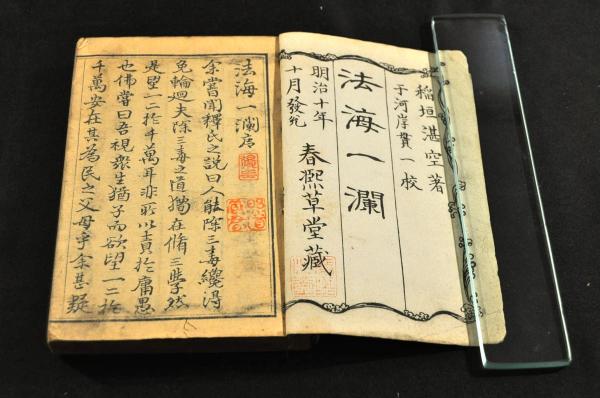 稲垣湛空著
干河岸貫一校
法海一瀾
明治十年
十月發兌
春熈草堂藏
法海一瀾序
余嘗聞釋氏之説曰人能除三毒纔得
免輪迴夫除三毒之道獨在脩三學然
是望一二於千萬耳非所以責於庸愚
也佛嘗曰吾視衆生猶子而欲望一二於
千萬安在其為民之父母乎余甚疑